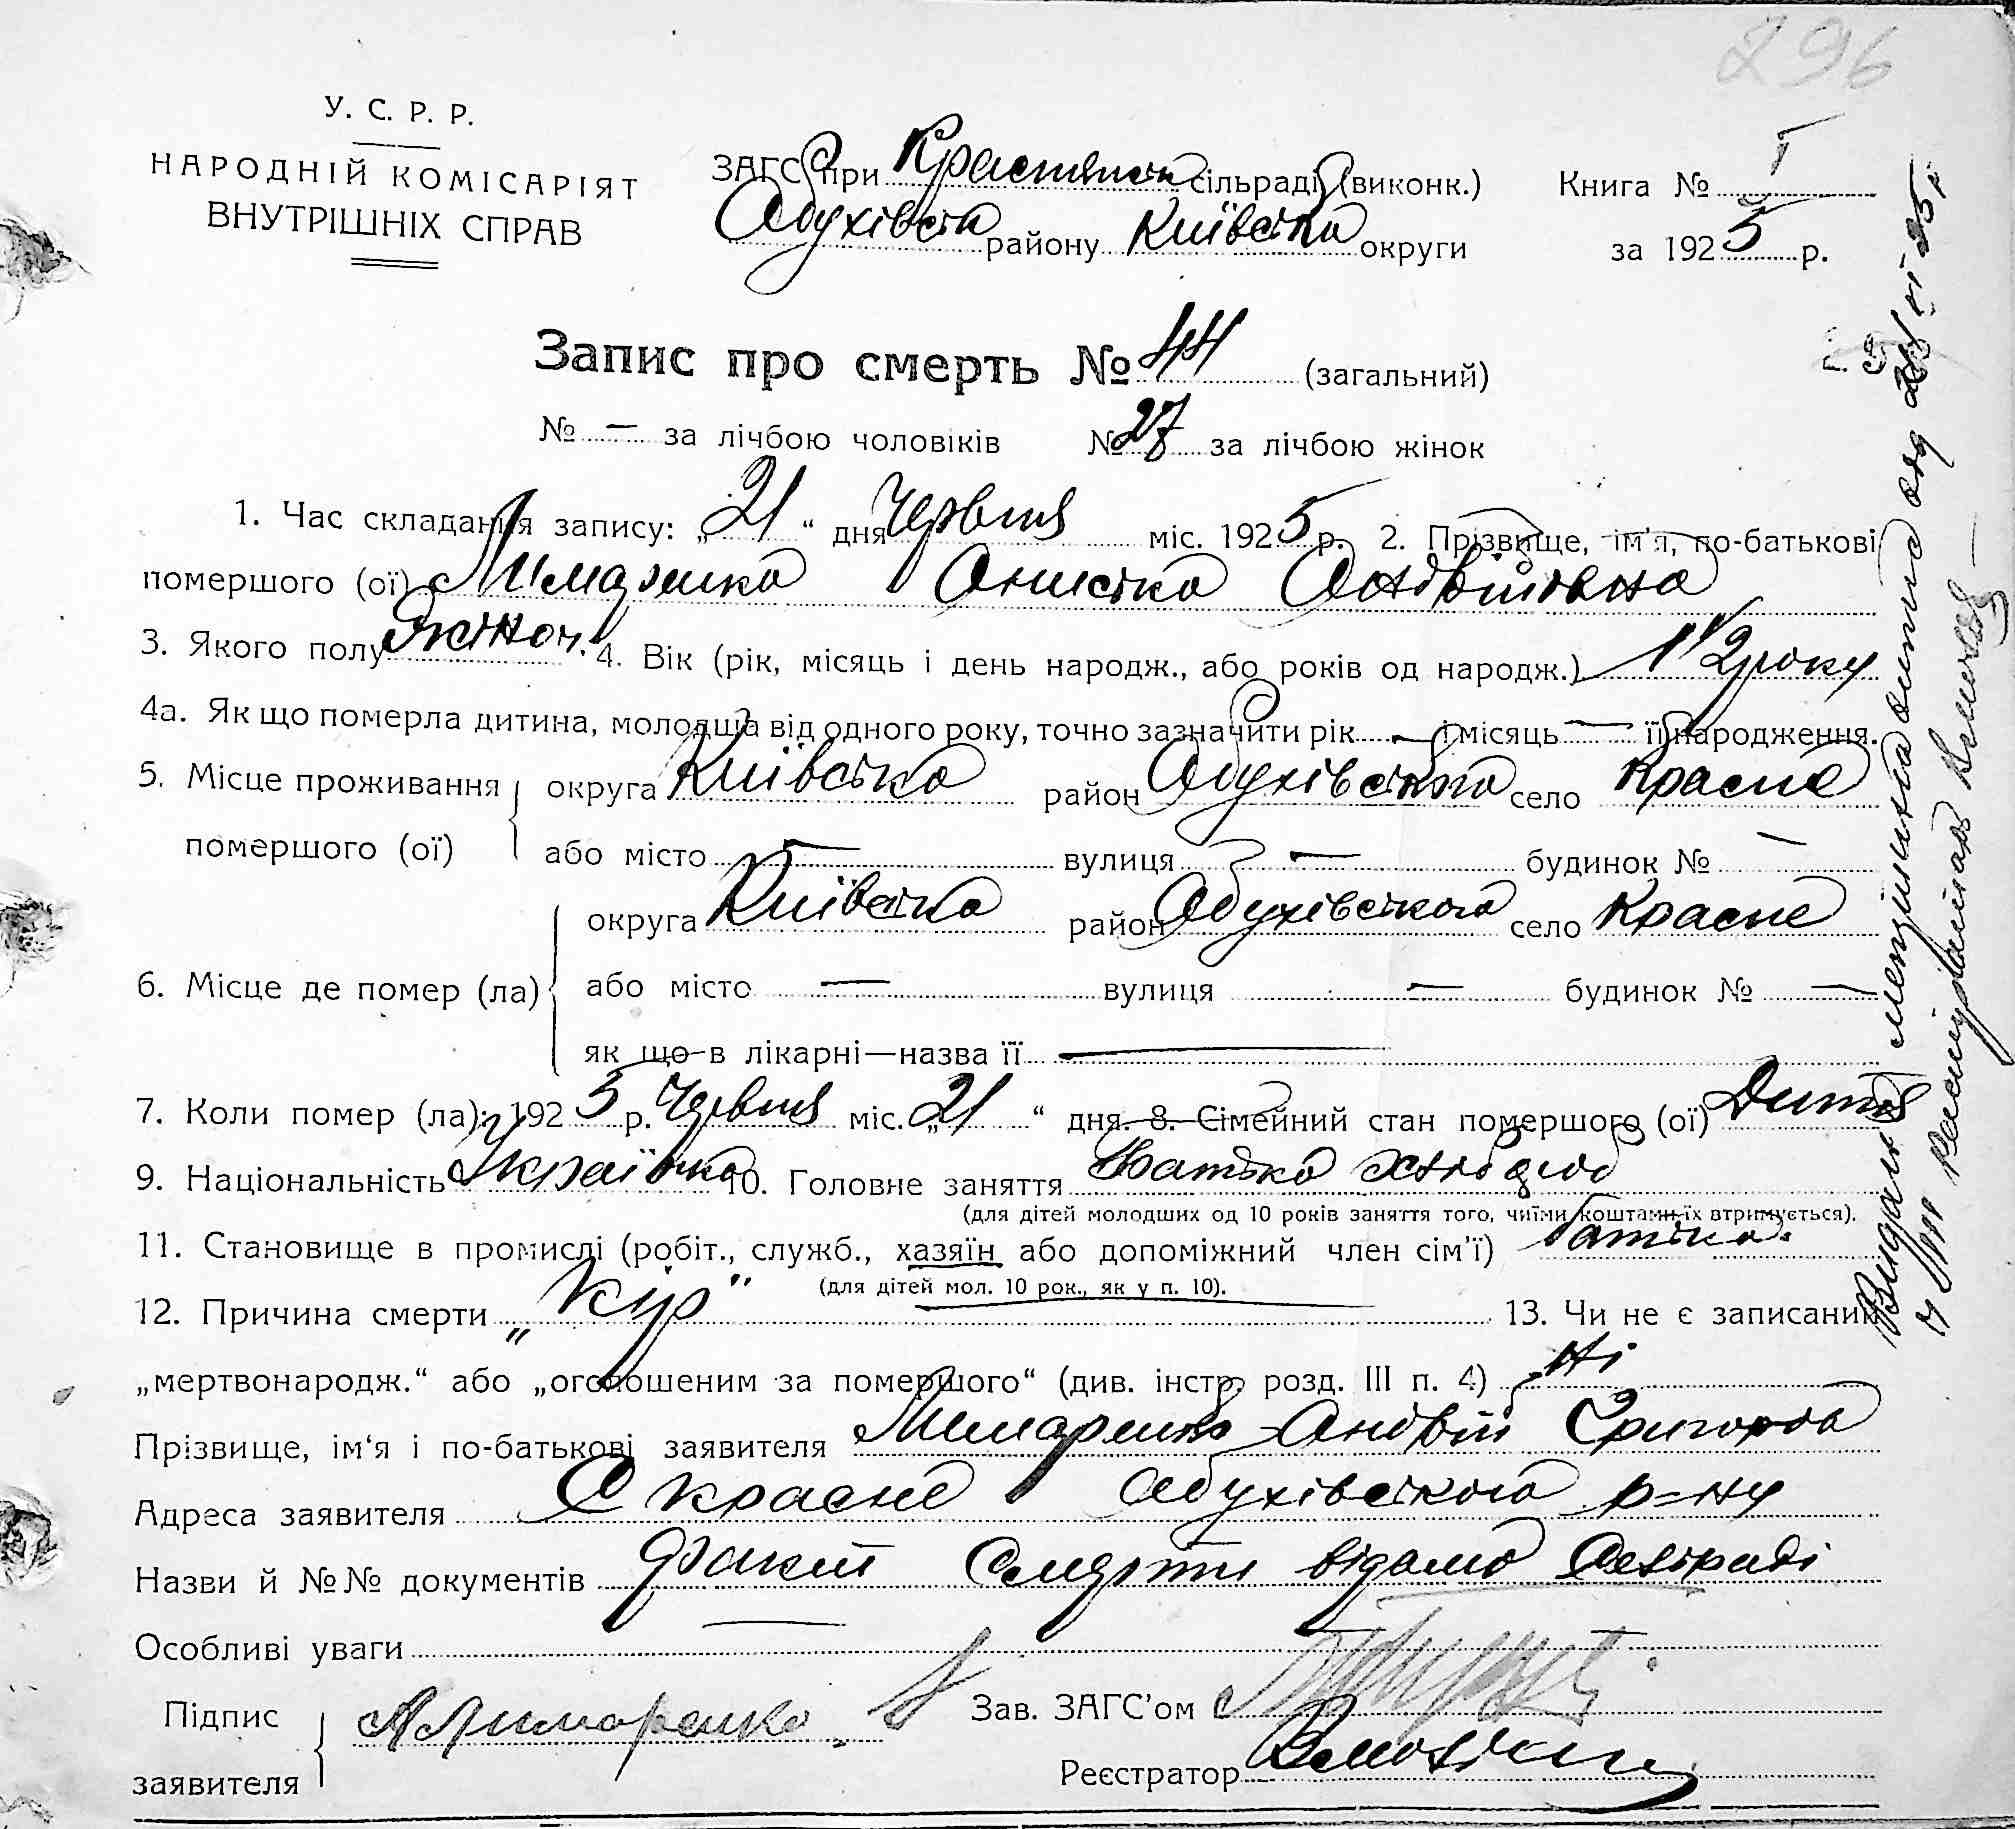 296
У. С. Р. Р.
НАРОДНІЙ КОМІСАРІЯТ
ВНУТРІШНІХ СПРАВ
ЗАГС при Краснянск сільраді (виконк.)
Обухівськ району Київська округи
Книга № I
за 1925 р.
Запис про смерть № 44 (загальний)
№ — за лічбою чоловіків № 27 за лічбою жінок
1. Час складання запису: „21“ дня Червня міс. 1925 р. 2. Прізвище, ім'я, по-батькові
помершого (ої) Лимаренко Аниська Андріївна
3. Якого полу Жіноч. 4. Вік (рік, місяць і день народж., або років од народж.) 1 1/2 року
4а. Як що померла дитина, молодша від одного року, точно зазначити рік — і місяць — її народження.
5. Місце проживання помершого (ої)
округа Київська район Обухівського село Красне
або місто — вулиця — будинок № —
6. Місце де помер (ла)
округа Київська район Обухівського село Красне
або місто — вулиця — будинок № —
як що в лікарні—назва її —
7. Коли помер (ла): 1925 р. Червня міс. „21“ дня. 8. Сімейний стан помершого (ої) Дитя
9. Національність Українка 10. Головне заняття Батько хлібороб
(для дітей молодших од 10 років заняття того, чиїми коштами їх втримується).
11. Становище в промислі (робіт., служб., хазяїн або допоміжний член сім'ї) батька.
(для дітей мол. 10 рок., як у п. 10).
12. Причина смерти „Кір" 13. Чи не є записаний
„мертвонародж.“ або „оголошеним за помершого“ (див. інстр. розд. III п. 4) Ні
Прізвище, ім'я і по-батькові заявителя Лимаренко Андрій Григоров
Адреса заявителя С Красне Обухівського р=ну
Назви й №№ документів Факт Смерти відомо Сельраді
Особливі уваги —
Підпис заявителя А Лимаренко
Зав. ЗАГС'ом
Реєстратор